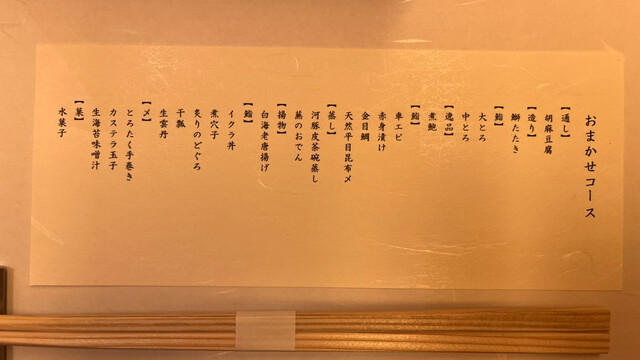 おまかせコース
【通し】
胡麻豆腐
【造り】
鰤たたき
【鮨】
大とろ
中とろ
【逸品】
煮鮑
【鮨】
車エビ
赤身漬け
金目鯛
天然平目昆布〆
【蒸し】
河豚皮茶碗蒸し
蕪のおでん
【揚物】
白海老唐揚げ
【鮨】
イクラ丼
煮穴子
炙りのどぐろ
干瓢
生雲丹
【〆】
とろたく手巻き
カステラ玉子
生海苔味噌汁
【菓】
水菓子